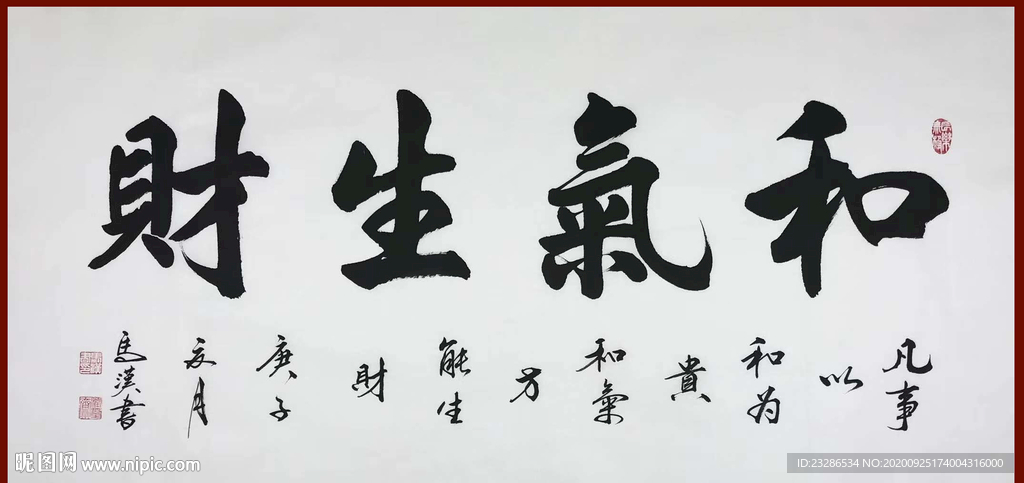 和氣生財
凡事
以
和为
貴
和氣
方
能生
財
庚子
友月
馬漢書
昵图网 www.nipic.com
ID:23286534 NO:20200925174004316000